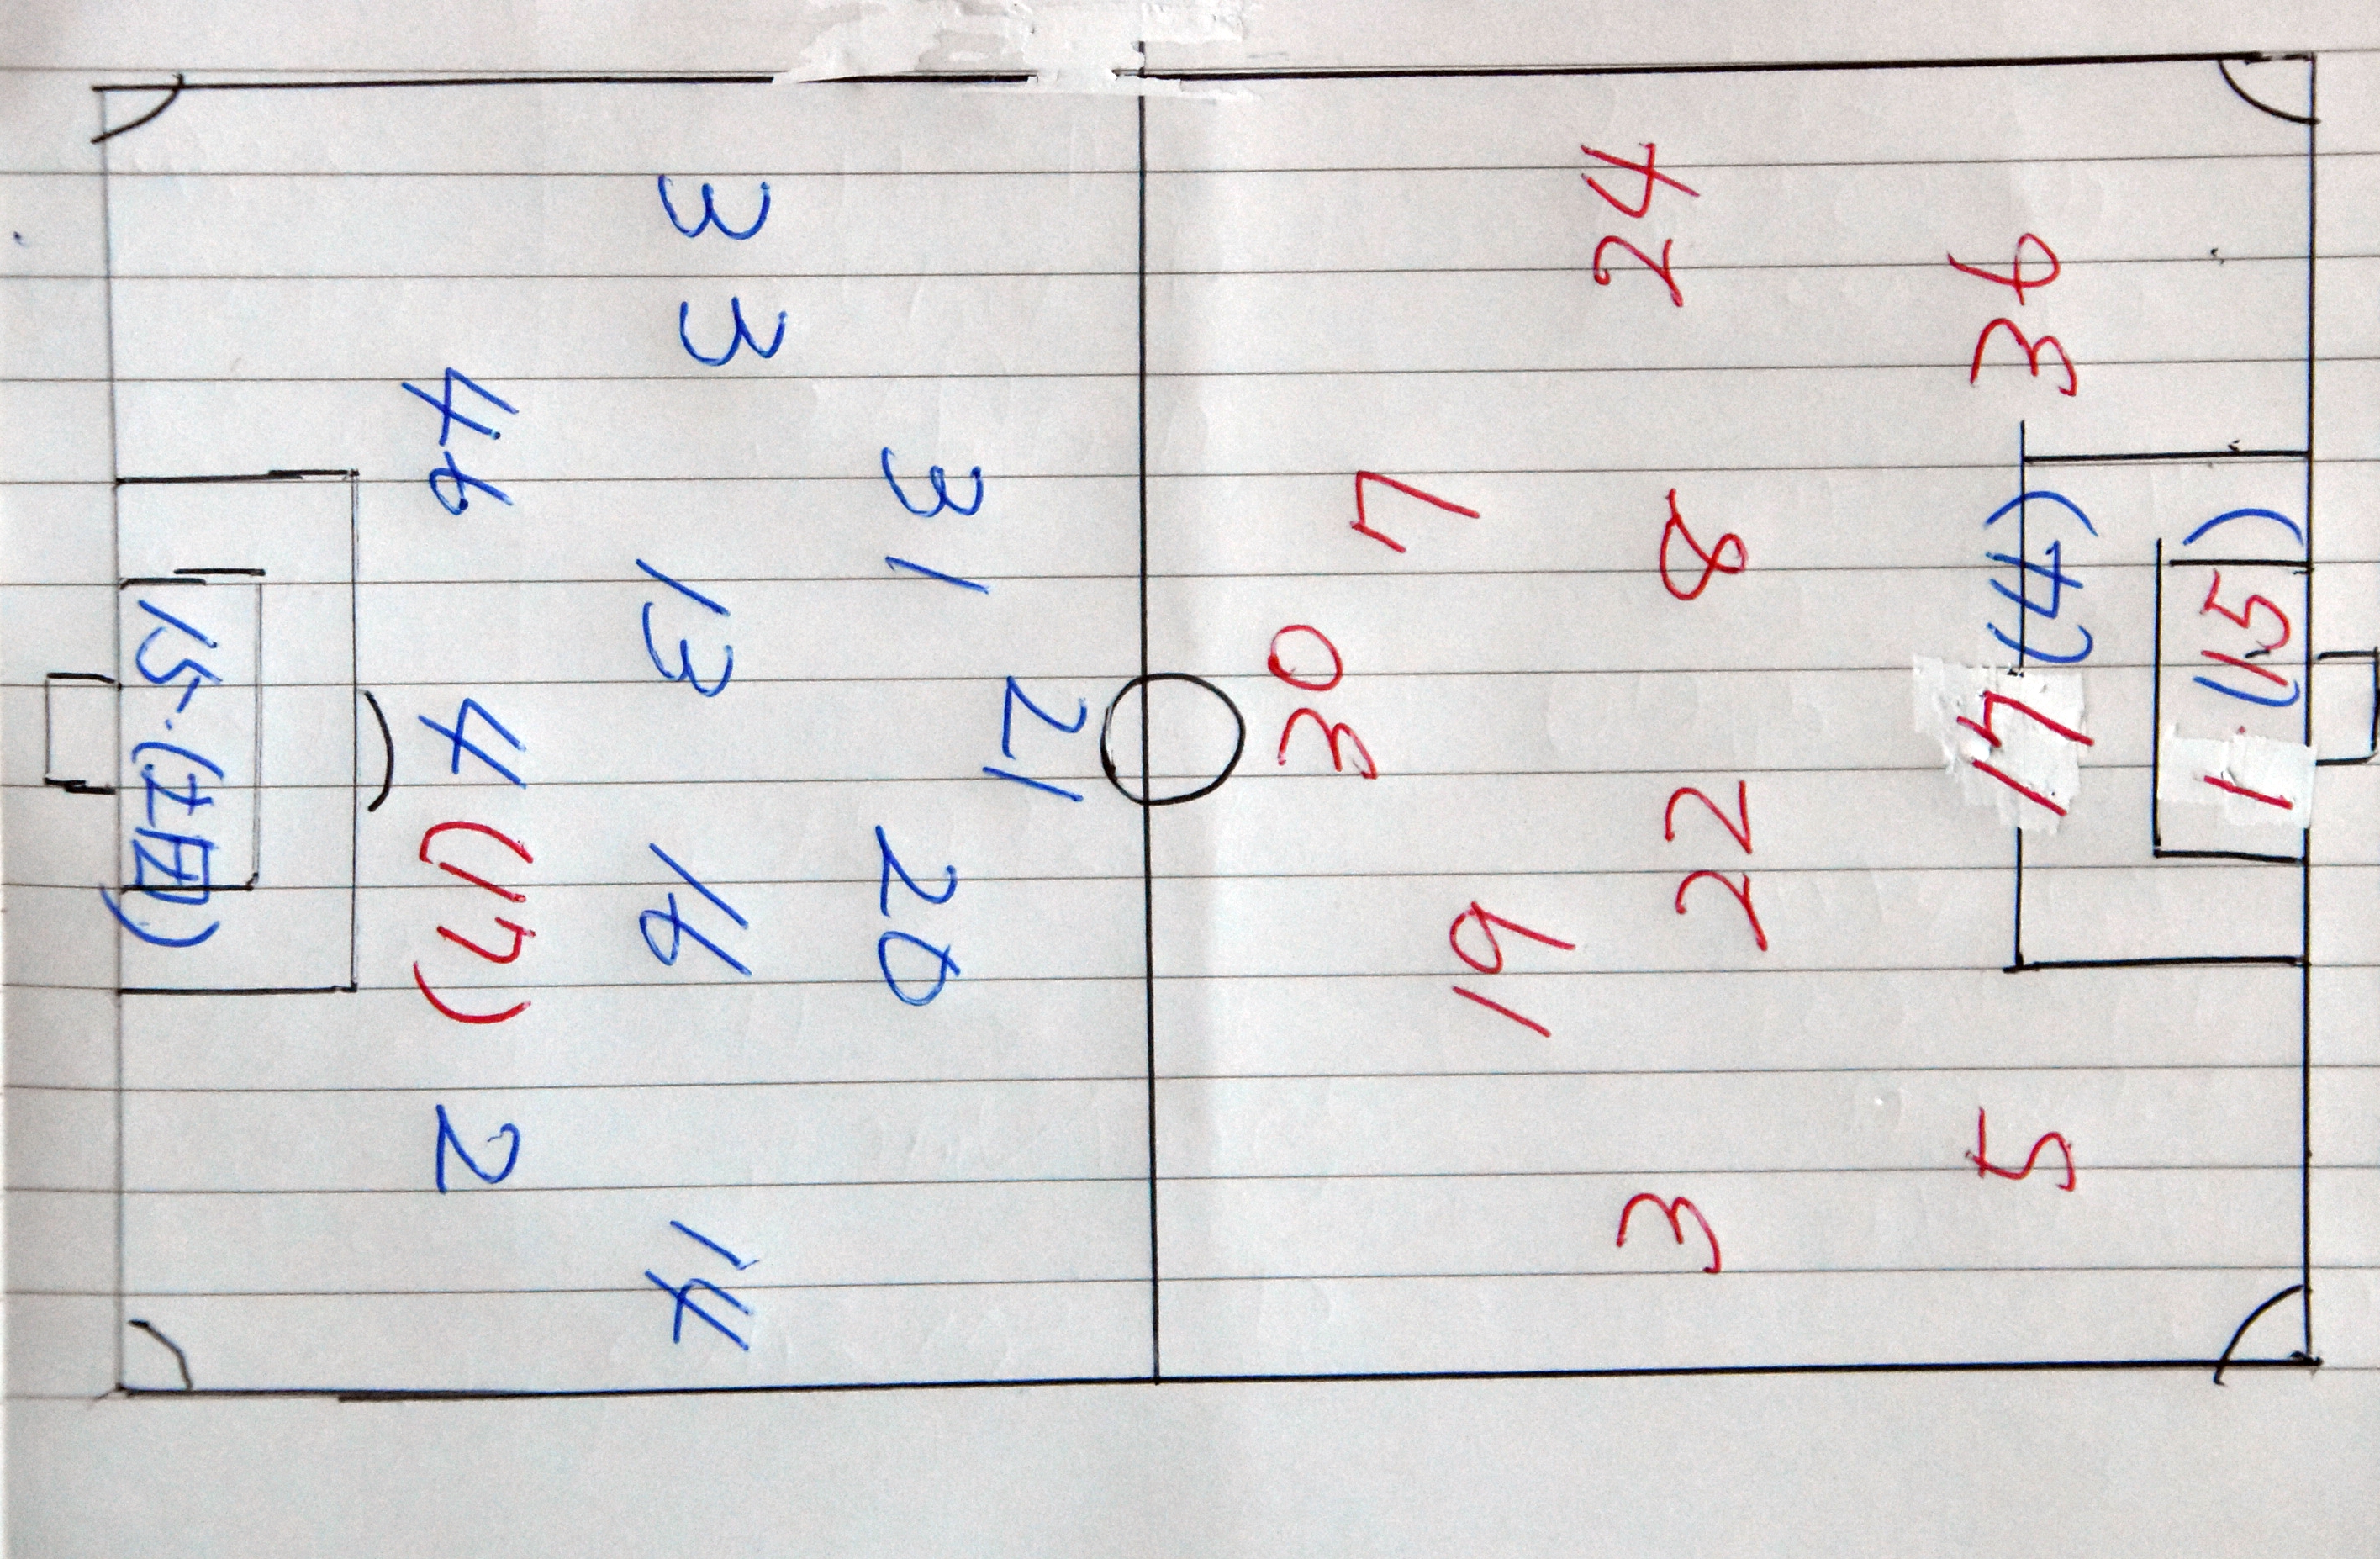 21
31 20
33 13 16 14
46 4 (17) 2
15.
30
19 7
3 22 8 24
5 17 (4) 36
1.(15)